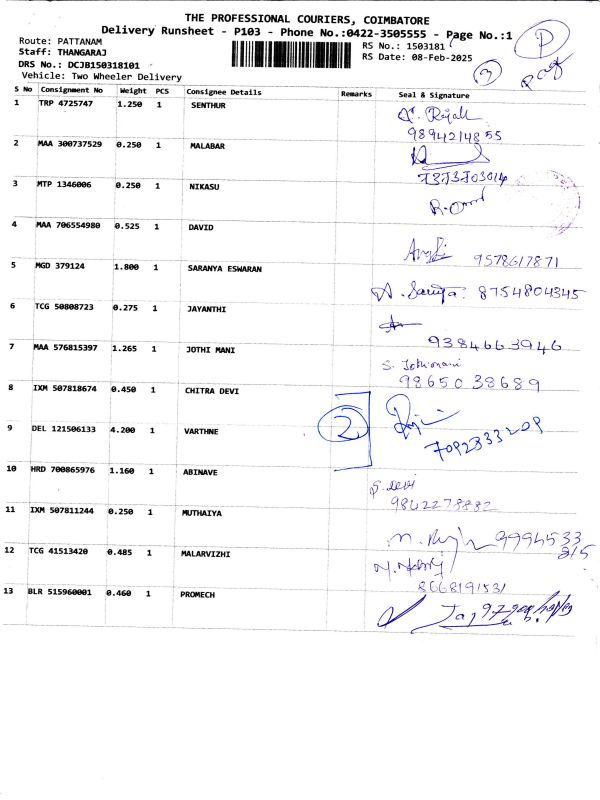 THE PROFESSIONAL COURIERS, COIMBATORE
Delivery Runsheet - P103 - Phone No.:0422-3505555 - Page No.:1
P
Route: PATTANAM RS No.: 1503181
Staff: THANGARAJ RS Date: 08-Feb-2025
DRS No.: DCJB150318101
Vehicle: Two Wheeler Delivery
3
S No Consignment No Weight PCS Consignee Details Remarks Seal & Signature
1 TRP 4725747 1.250 1 SENTHUR
9894214855
2 MAA 300737529 0.250 1 MALABAR
3 MTP 1346006 0.250 1 NIKASU
4 MAA 706554980 0.525 1 DAVID
9578617871
5 MGD 379124 1.800 1 SARANYA ESWARAN
8754804345
6 TCG 50808723 0.275 1 JAYANTHI
9384663946
7 MAA 576815397 1.265 1 JOTHI MANI
S. Jothimani
9865038689
8 IXM 507818674 0.450 1 CHITRA DEVI
2
9 DEL 121506133 4.200 1 VARTHNE
7092333209
10 HRD 700865976 1.160 1 ABINAVE
S. Devi
9842278882
11 IXM 507811244 0.250 1 MUTHAIYA
9994533
815
12 TCG 41513420 0.485 1 MALARVIZHI
8668191531
13 BLR 515960001 0.460 1 PROMECH